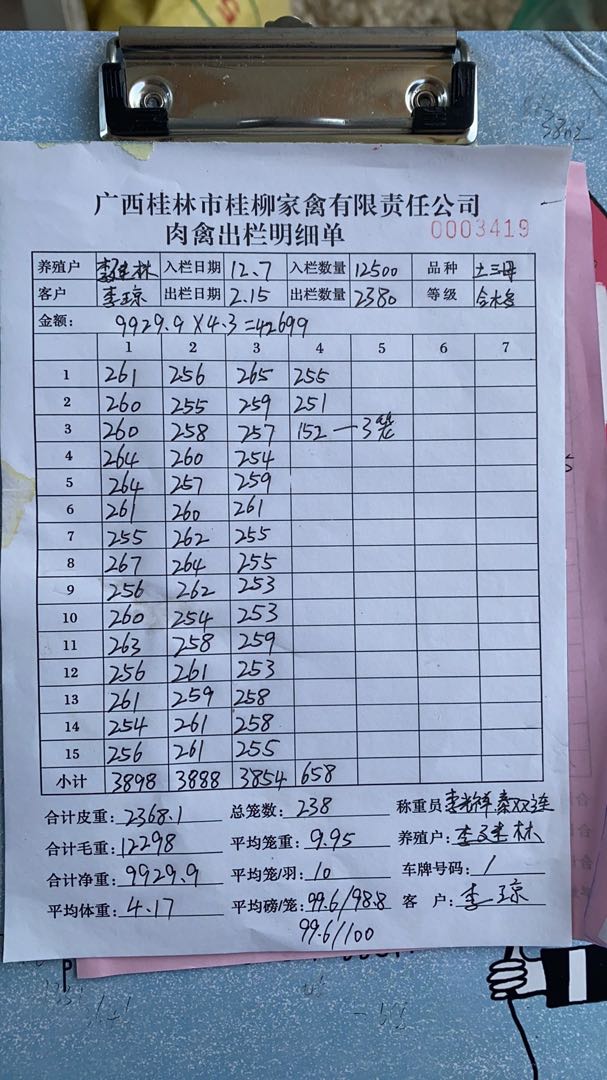 广西桂林市桂柳家禽有限责任公司
肉禽出栏明细单 0003419
养殖户 李建林 入栏日期 12.7 入栏数量 12500 品种 土三母
客户 李琼 出栏日期 2.15 出栏数量 2380 等级
金额: 9929.9×4.3=42699
1 2 3 4 5 6 7
1 261 256 265 255
2 260 255 259 251
3 260 258 257 152—3笼
4 264 260 254
5 264 257 259
6 261 260 261
7 255 262 255
8 267 264 255
9 256 262 253
10 260 254 253
11 263 258 259
12 256 261 253
13 261 259 258
14 254 261 258
15 256 261 255
小计 3898 3888 3854 658
合计皮重: 2368.1 总笼数: 238 称重员
合计毛重: 12298 平均笼重: 9.95 养殖户: 李建林
合计净重: 9929.9 平均笼/羽: 10 车牌号码: /
平均体重: 4.17 平均磅/笼: 99.6/98.8 客 户: 李琼
99.6/100